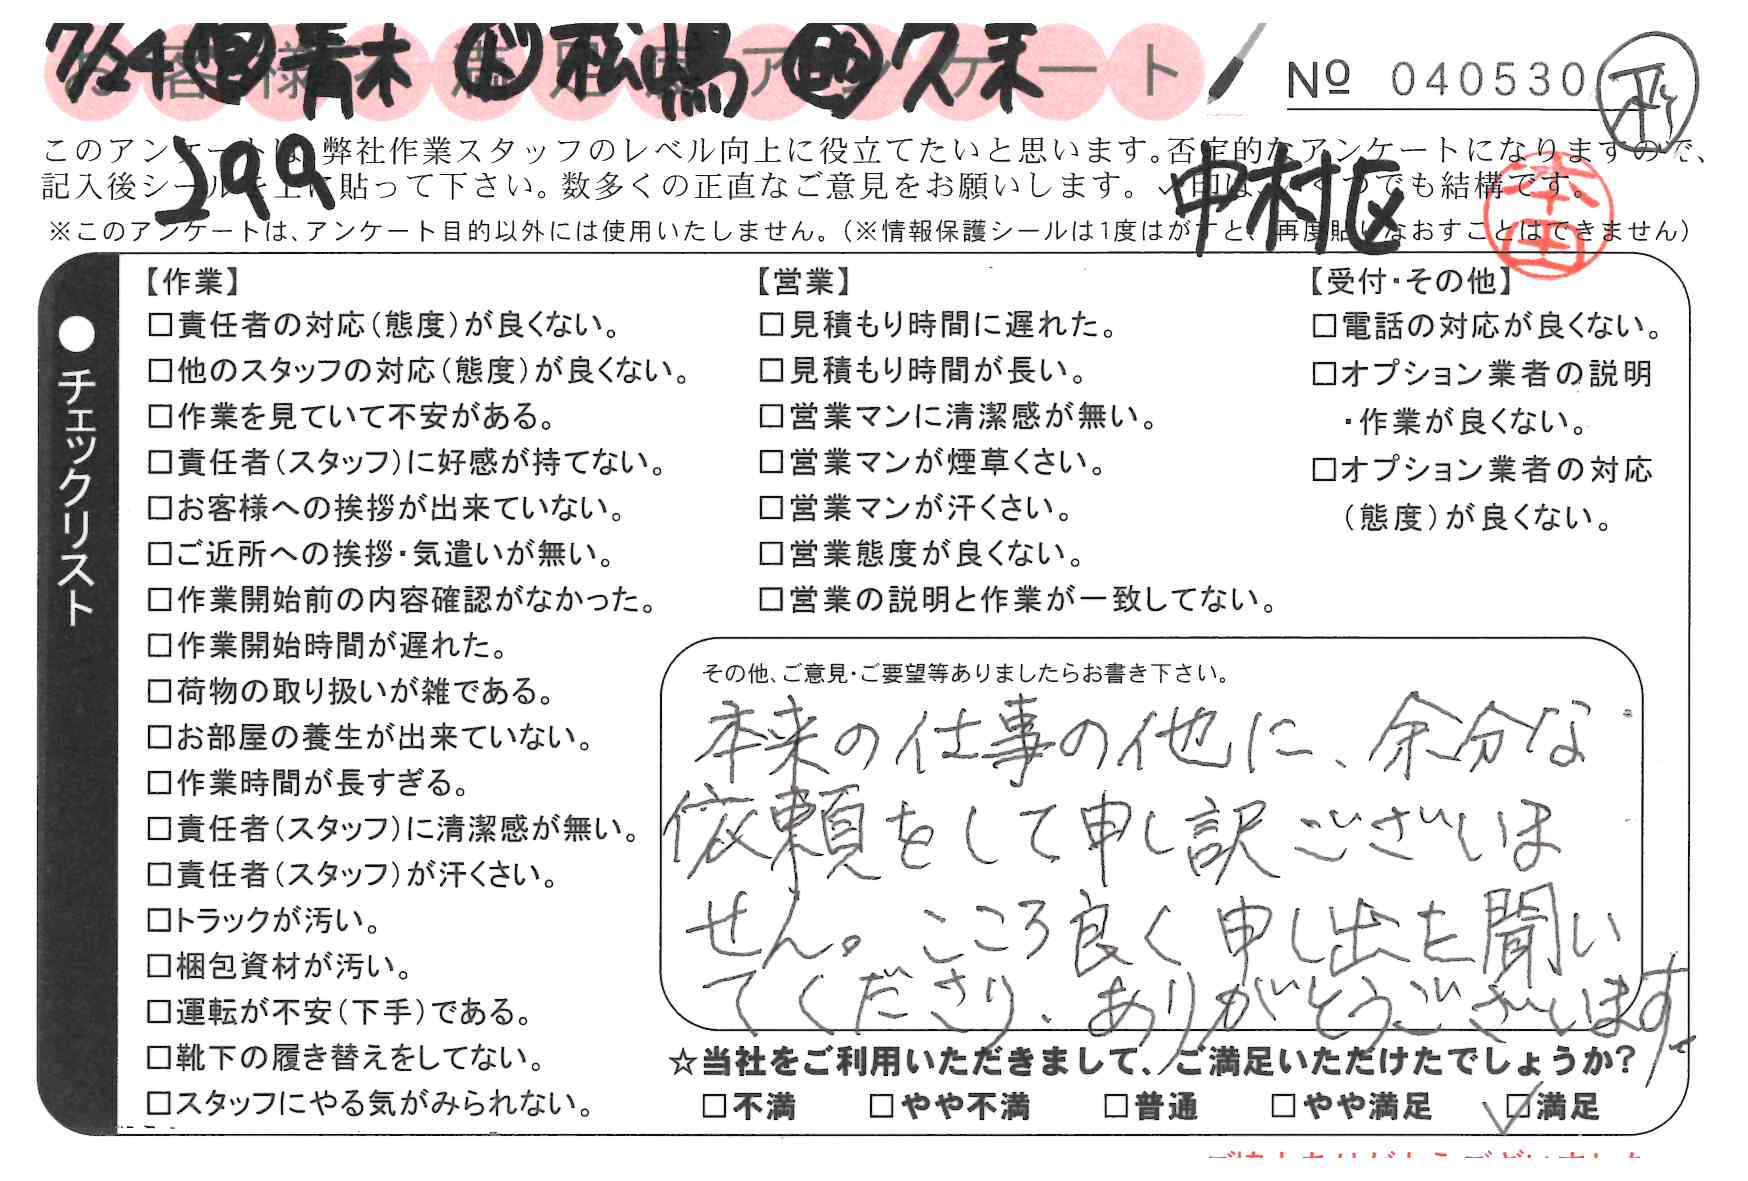 7/24 青木 松嶋 久末
お客様満足度アンケート
№ 040530
299
中村区
本田
このアンケートは、弊社作業スタッフのレベル向上に役立てたいと思います。否定的なアンケートになりますので、
記入後シールを上に貼って下さい。数多くの正直なご意見をお願いします。✓印は、いくつでも結構です。
※このアンケートは、アンケート目的以外には使用いたしません。(※情報保護シールは1度はがすと、再度貼りなおすことはできません)
●チェックリスト
【作業】
□責任者の対応(態度)が良くない。
□他のスタッフの対応(態度)が良くない。
□作業を見ていて不安がある。
□責任者(スタッフ)に好感が持てない。
□お客様への挨拶が出来ていない。
□ご近所への挨拶・気遣いが無い。
□作業開始前の内容確認がなかった。
□作業開始時間が遅れた。
□荷物の取り扱いが雑である。
□お部屋の養生が出来ていない。
□作業時間が長すぎる。
□責任者(スタッフ)に清潔感が無い。
□責任者(スタッフ)が汗くさい。
□トラックが汚い。
□梱包資材が汚い。
□運転が不安(下手)である。
□靴下の履き替えをしてない。
□スタッフにやる気がみられない。
【営業】
□見積もり時間に遅れた。
□見積もり時間が長い。
□営業マンに清潔感が無い。
□営業マンが煙草くさい。
□営業マンが汗くさい。
□営業態度が良くない。
□営業の説明と作業が一致してない。
【受付・その他】
□電話の対応が良くない。
□オプション業者の説明
・作業が良くない。
□オプション業者の対応
(態度)が良くない。
その他、ご意見・ご要望等ありましたらお書き下さい。
本来の仕事の他に、余分な
依頼をして申し訳ございま
せん。こころ良く申し出を聞い
てくださり、ありがとうございます。
☆当社をご利用いただきまして、ご満足いただけたでしょうか?
□不満 □やや不満 □普通 □やや満足 ✓□満足